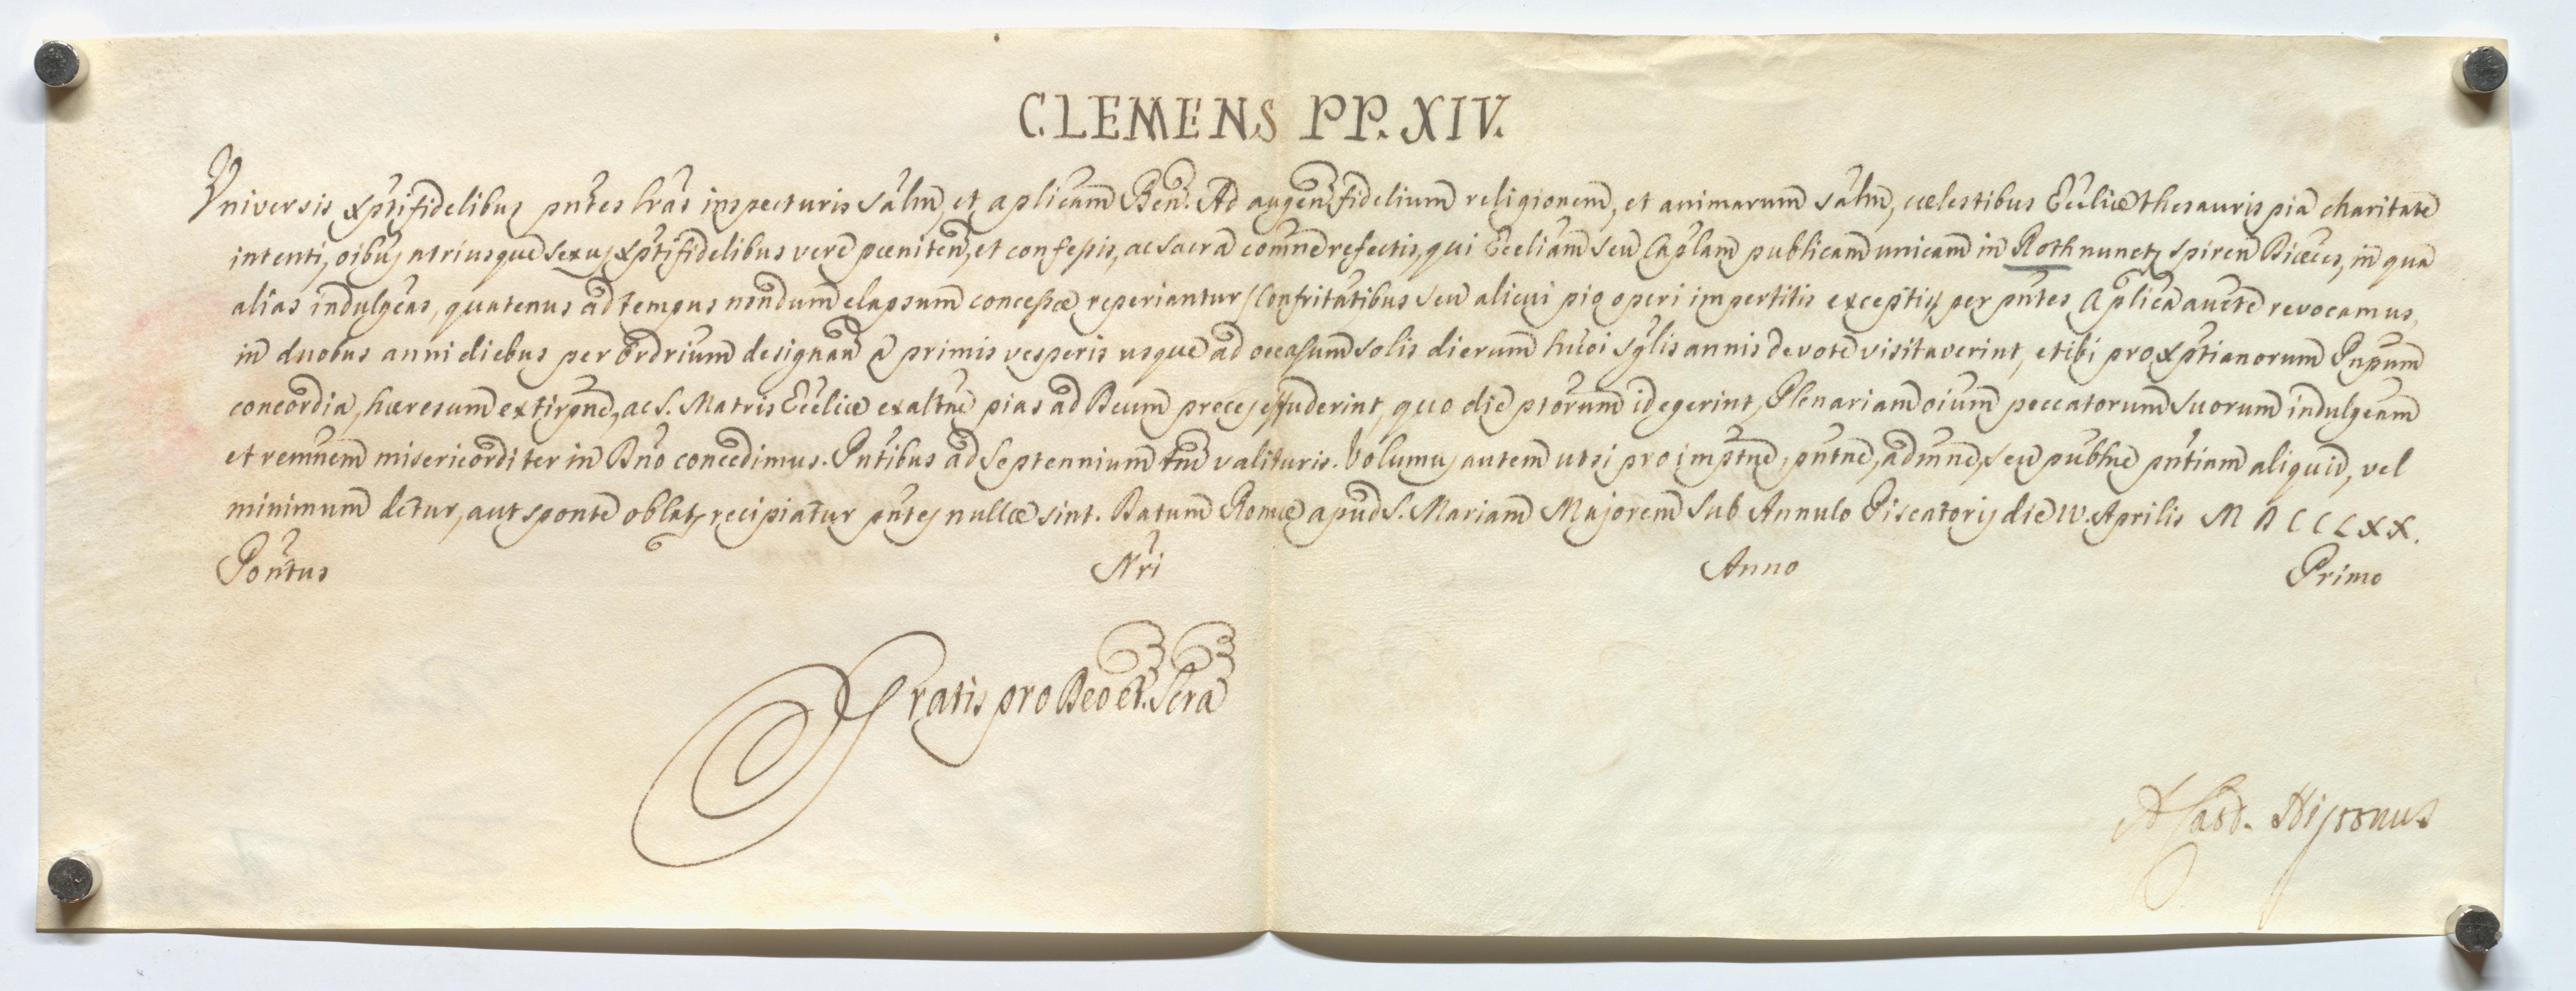 CLEMENS PP. XIV.
Universis Xptifidelibus pntes lras inspecturis Salm, et aplicam Ben. Ad augen fidelium religionem, et animarum salm, cœlestibus Eccliæ thesauris pia charitate
intenti, oibus utriusque sexus Xptifidelibus vere pœniten, et confessis, ac sacra comne refectis, qui Eccliam seu Caplam publicam unicam in Roth nuncup Spiren Diœces, in qua
alias indulgeas, quatenus ad tempus nondum elapsum concessæ reperiantur, Confritatibus seu alicui pio operi impertitis exceptis, per pntes aplica aucte revocamus,
in duobus anni diebus per Ordrium designan a primis vesperis usque ad occasum solis dierum hmoi sglis annis devote visitaverint, et ibi pro Xptianorum Pnpum
concordia, hæresum extirpne, ac S. Matris Ecclie exaltne pias ad Deum preces effuderint, quo die ptorum id egerint, Plenariam oium peccatorum suorum indulgeam
et remnem misericorditer in Dno concedimus. Pntibus ad Septennium tm valituris. Volumus autem ut si pro imptne, pntne, admne, seu publne pntium aliquid, vel
minimum detur, aut sponte oblat, recipiatur pntes nullæ sint. Datum Romæ apud S. Mariam Majorem sub Annulo Piscatoris die IV. Aprilis MDCCLXX.
Pontus Nri Anno Primo
Gratis pro Deo et Scra
A Card. Nigronus